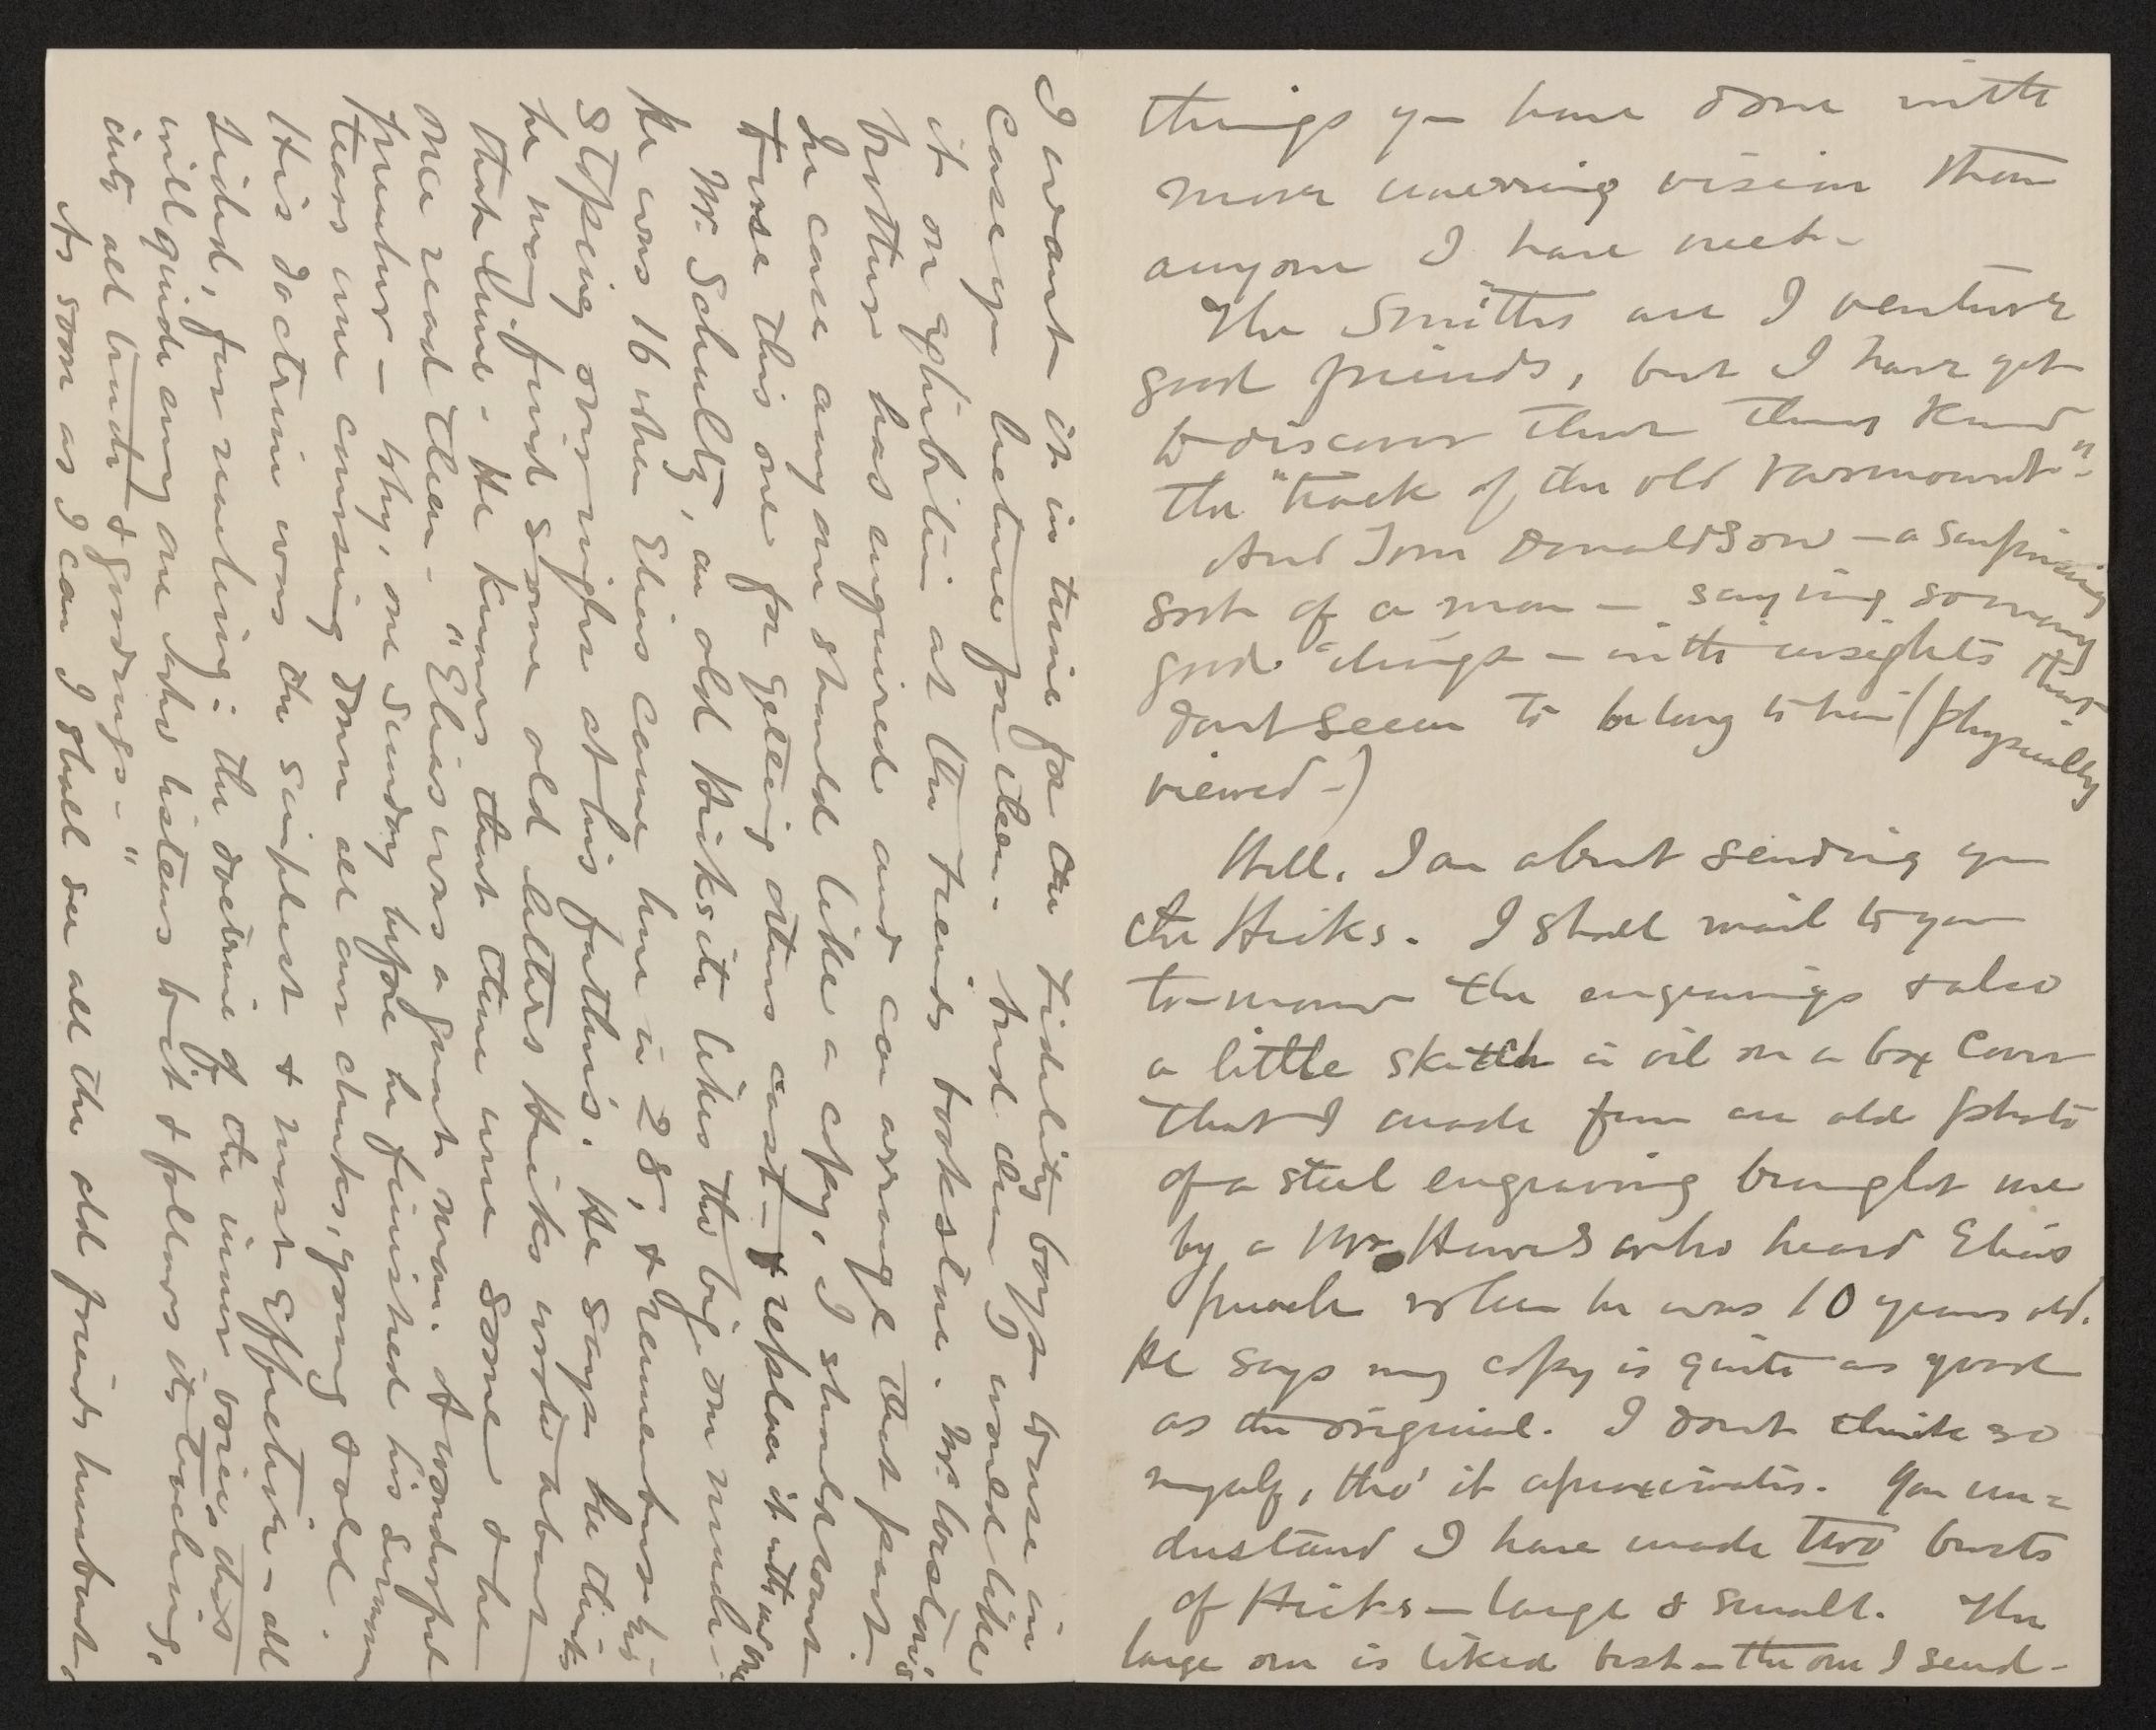 things you have done with
more unerring vision than
anyone I have met-
The Smiths are I venture
good friends, but I have yet
to discover that they
the "track of the old
And Tom Donaldson — a surprising
sort of a man — saying so many
good things — with insights that
dont seem to belong to him (physically
viewed-)
Well, I am about sending you
the Hicks. I shall mail to you
to-morrow the engravings & also
a little sketch in oil on a box cover
that I made from an old photo
of a steel engraving brought me
by a Mr Hawes who heard Elias
preach when he was 10 years old.
He says my copy is quite as good
as the original. I dont think so
myself, tho' it aproximates. You un=
derstand I have made two busts
of Hicks — large & small. The
large one is liked best — the one I send-
I want it in time for the Fidelity boys to use in
case you lecture for them. And they would like
it on exhibition at the Friends bookstore. Mr. Caston's
brother has enquired and can arrange that part.
In case any one should like a copy, I should want
to use this one for getting others cast — & replace it with one
Mr. Schultz, an old Hicksite likes the big one much-
he was 16 when Elias came here in 28, & remembers his
stoping over night at his father's. He says he thinks
he may find some old letters Hicks wrote about
that time. He knows that there were some & he
once read them - "Elias was a great man. A wonderful
preacher — why, one Sunday before he finished his sermon
tears were coursing down all our cheeks, young & old.
His doctrine was the simplest & most Effective — all
sided, for reuniting: the doctrine of the inner voice this
will guide any one who listens to it & follows its teaching,
into all truth & goodness - "
As soon as I can I shall see all the old friends hereabout,